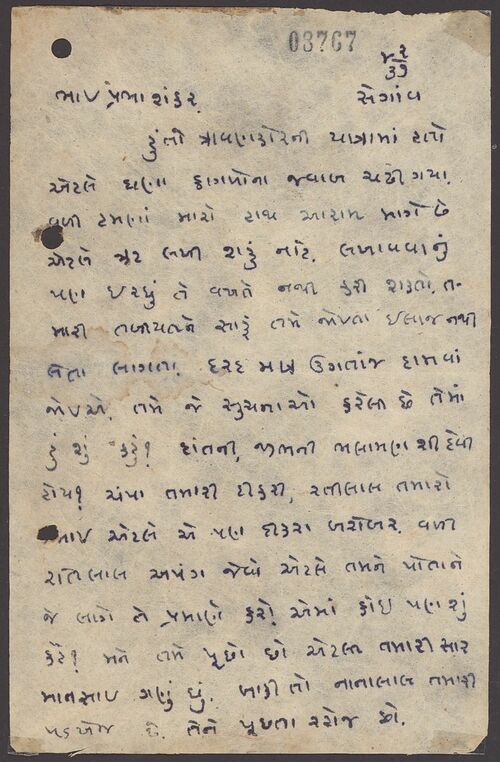 03767
૪૨
૩૭
ભાઇ પ્રભાશંકર, સેગાંવ
હું તો ત્રાવણકોરની યાત્રામાં હતો
એટલે ઘણા કાગળોના જવાબ ચઢી ગયા.
વળી હમણાં મારો હાથ આરામ માગે છે
એટલે ઝટ લખી શકું નહિ. લખાવવાનું
પણ ઇચ્છું તે વખતે નથી કરી શકતો. ત-
મારી તબીયતને સારૂં તમે જોઇતા ઇલાજ નથી
લેતા લાગતા. દરદ માત્ર ઉગતાંજ દાબવાં
જોઇએ. તમે જે સુચનાઓ કરેલી છે તેમાં
હું શું કહું? દાંતની, જીભની ભલામણ શી દેવી
હોય? ચંપા તમારી દીકરી, રતીલાલ તમારો
જમાઇ એટલે એ પણ દીકરા બરોબર. વળી
રતિલાલ અપંગ જેવો એટલે તમને પોતાને
જે લાગે તે પ્રમાણે કરો. એમાં કોઇ પણ શું
કહે? મને તમે પૂછો છો એટલી તમારી સાર
માનસાઇ ગણું છું. બાકી તો નાનાલાલ તમારી
પડખેજ છે. તેને પૂછતા રહેજો.